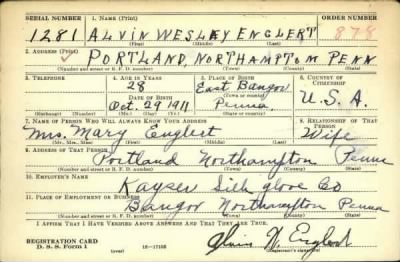 SERIAL NUMBER 1. NAME (Print) ORDER NUMBER
1281 ALVIN WESLEY ENGLERT 878
(First) (Middle) (Last)
2. ADDRESS (Print)
PORTLAND, NORTHAMPTON PENN
(Number and street or R. F. D. number) (Town) (County) (State)
3. TELEPHONE 4. AGE IN YEARS 5. PLACE OF BIRTH 6. COUNTRY OF CITIZENSHIP
28 East Bangor
DATE OF BIRTH (Town or county)
Oct. 29 1911 Penna. U. S. A.
(Exchange) (Number) (Mo.) (Day) (Yr.) (State or country)
7. NAME OF PERSON WHO WILL ALWAYS KNOW YOUR ADDRESS 8. RELATIONSHIP OF THAT PERSON
Mrs. Mary Englert Wife
(Mr., Mrs., Miss) (First) (Middle) (Last)
9. ADDRESS OF THAT PERSON
Portland Northampton Penna
(Number and street or R. F. D. number) (Town) (County) (State)
10. EMPLOYER'S NAME
Kayser Silk glove Co
11. PLACE OF EMPLOYMENT OR BUSINESS
Bangor Northampton Penna
(Number and street or R. F. D. number) (Town) (County) (State)
I AFFIRM THAT I HAVE VERIFIED ABOVE ANSWERS AND THAT THEY ARE TRUE.
REGISTRATION CARD
D. S. S. Form 1 (over) 16—17105 Alvin W. Englert
(Registrant's signature)